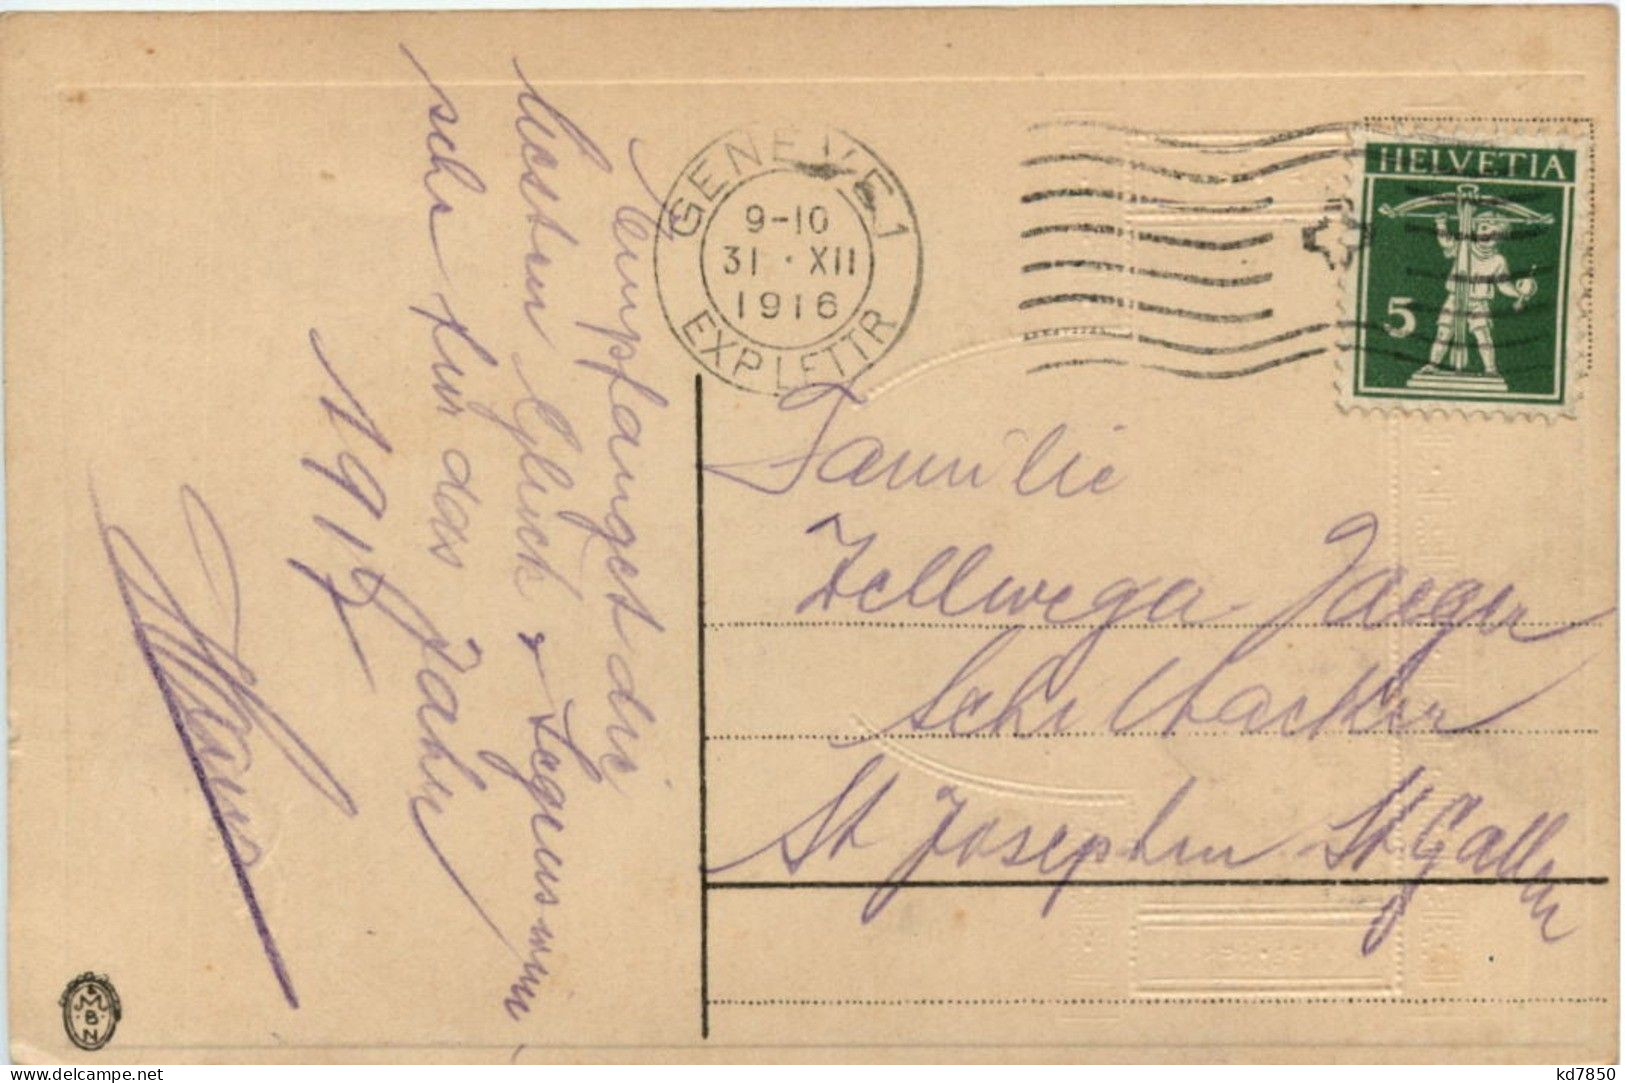 Empfanget die
besten Glück & Segenswün
schr für das Jahr
1917
Hans
GENEVE 1
9-10
31 · XII
1916
EXP. LETTR
HELVETIA
5
Familie
Zellweger Jaeger
Schillacker
St Josephen St Gallen
M
B
N
delcampe.net
kd7850